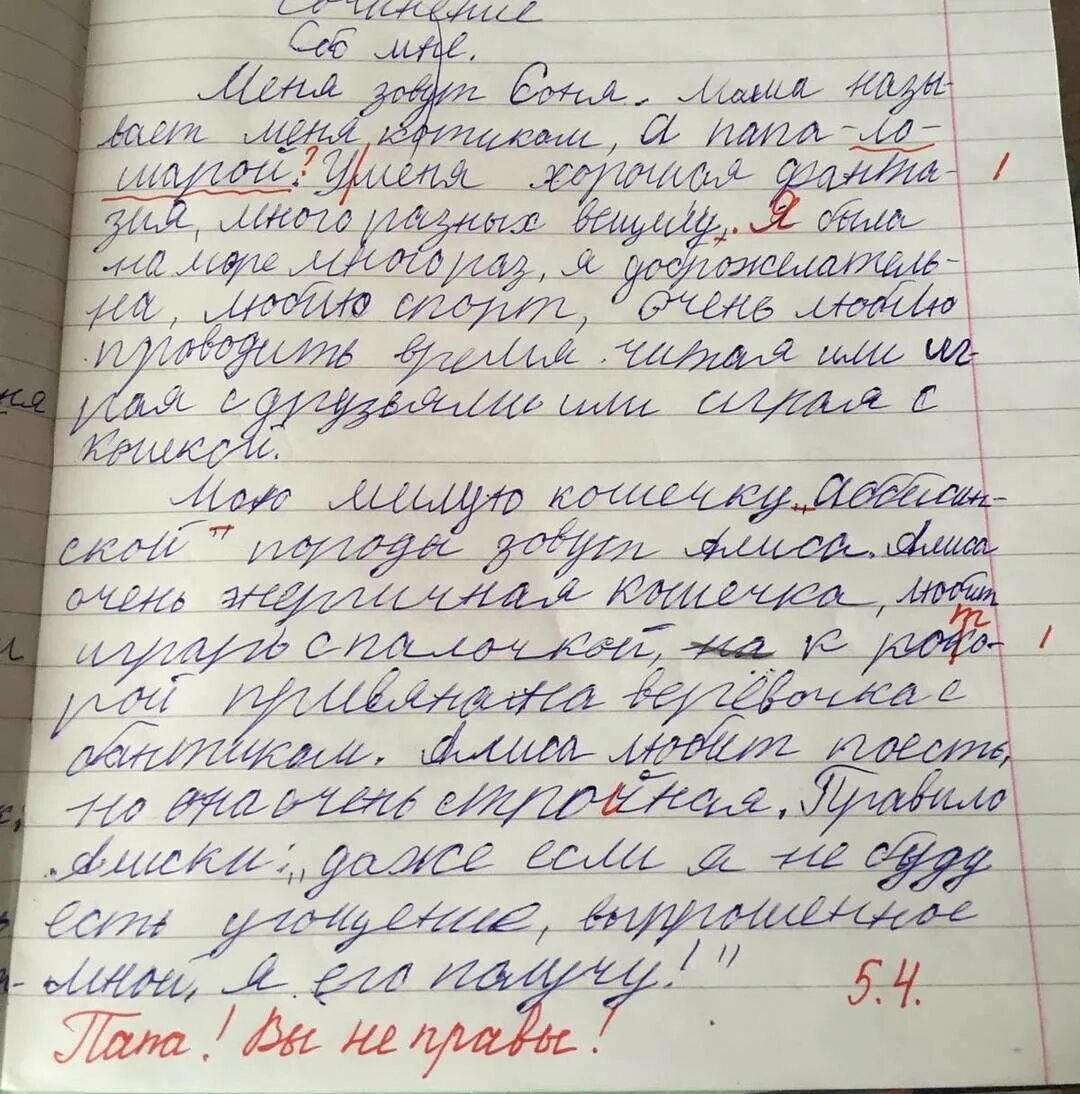 Сочинение
Соб мне.
Меня зовут Соня. Мама назы-
вает меня котиком, а папа-ло-
шарой? У меня хорошая фанта- 1
зия, много разных вещицу. Я была
на море много раз, я доброжелатель-
на, люблю спорт, очень люблю
проводить время читая или иг-
рая с друзьями или играя с
кошкой.
Мою милую кошечку „Аббисин-
ской" породы зовут Алиса. Алиса
очень энергичная кошечка, любит
играть с палочкой, на к которо- 1
рой привяна на верёвочка с
бантиком. Алиса любит поесть,
но она очень стройная. Правило
Алиски: „даже если я не буду
есть угощение, выпрошенное
мной, я его получу!"
5.4.
Папа! Вы не правы!